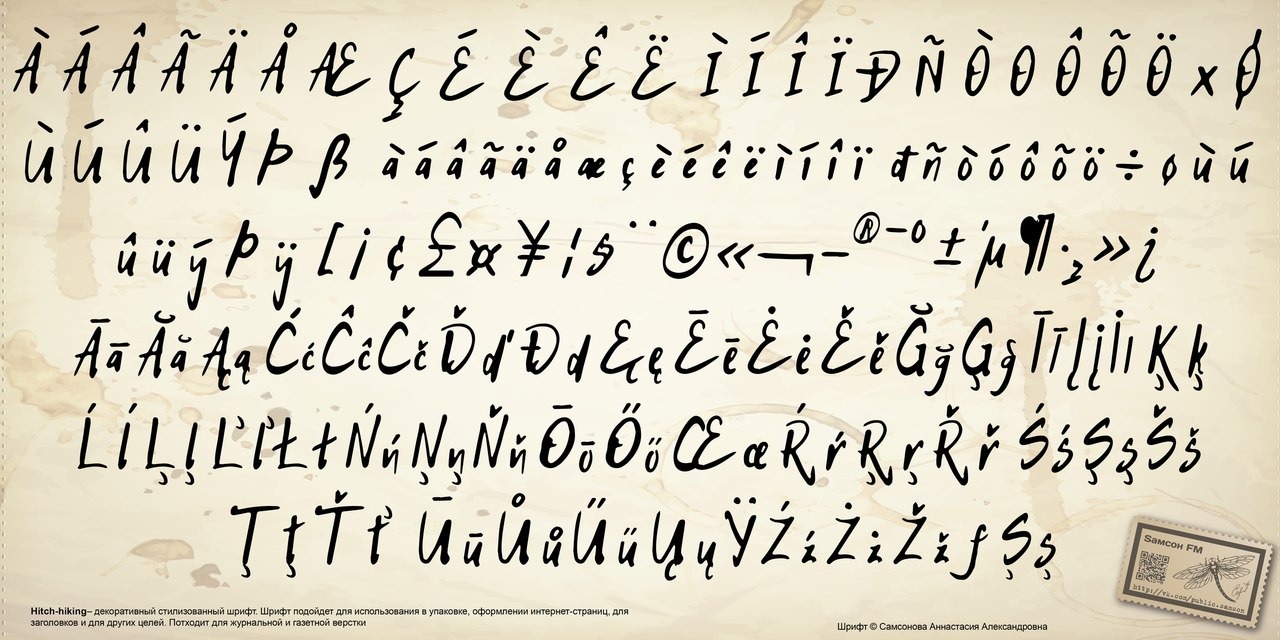 À Á Â Ã Ä Å Æ Ç É È Ê Ë Ì Í Î Ï Ð Ñ Ò Ó Ô Õ Ö × Ø
Ù Ú Û Ü Ý Þ ß à á â ã ä å æ ç è é ê ë ì í î ï đ ñ ò ó ô õ ö ÷ ø ù ú
û ü ý Þ ÿ [ ¡ ¢ £ ¤ ¥ ¦ § ¨ © « ¬ – ® ¯ ° ± ´ µ ¶ · ¸ » ¿
Ā ā Ă ă Ą ą Ć ć Ĉ ĉ Č č Ď ď Đ d Ę ę Ē ē Ė ė Ě ě Ğ ğ Ģ ģ Ī ī Į į İ ı Ķ ķ
Ĺ ĺ Ļ ļ Ľ ľ Ł ł Ń ń Ņ ņ Ň ň Ō ō Ő ő Œ œ Ŕ ŕ Ŗ ŗ Ř ř Ś ś Ş ş Š š
Ţ ţ Ť ť Ū ū Ů ů Ű ű Ų ų Ÿ Ź ź Ż ż Ž ž ƒ Ș ș
Samсон FM
http://vk.com/public.samson
Hitch-hiking– декоративный стилизованный шрифт. Шрифт подойдет для использования в упаковке, оформлении интернет-страниц, для
заголовков и для других целей. Потходит для журнальной и газетной верстки
Шрифт © Самсонова Аннастасия Александровна